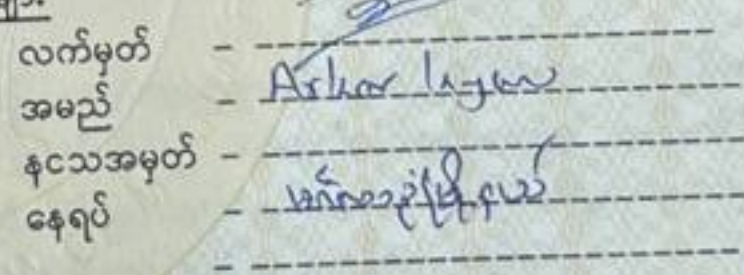 လက်မှတ် -
အမည် - Arkar
နငသအမှတ် -
နေရပ် - မင်္ဂလာဒုံမြို့နယ်
-